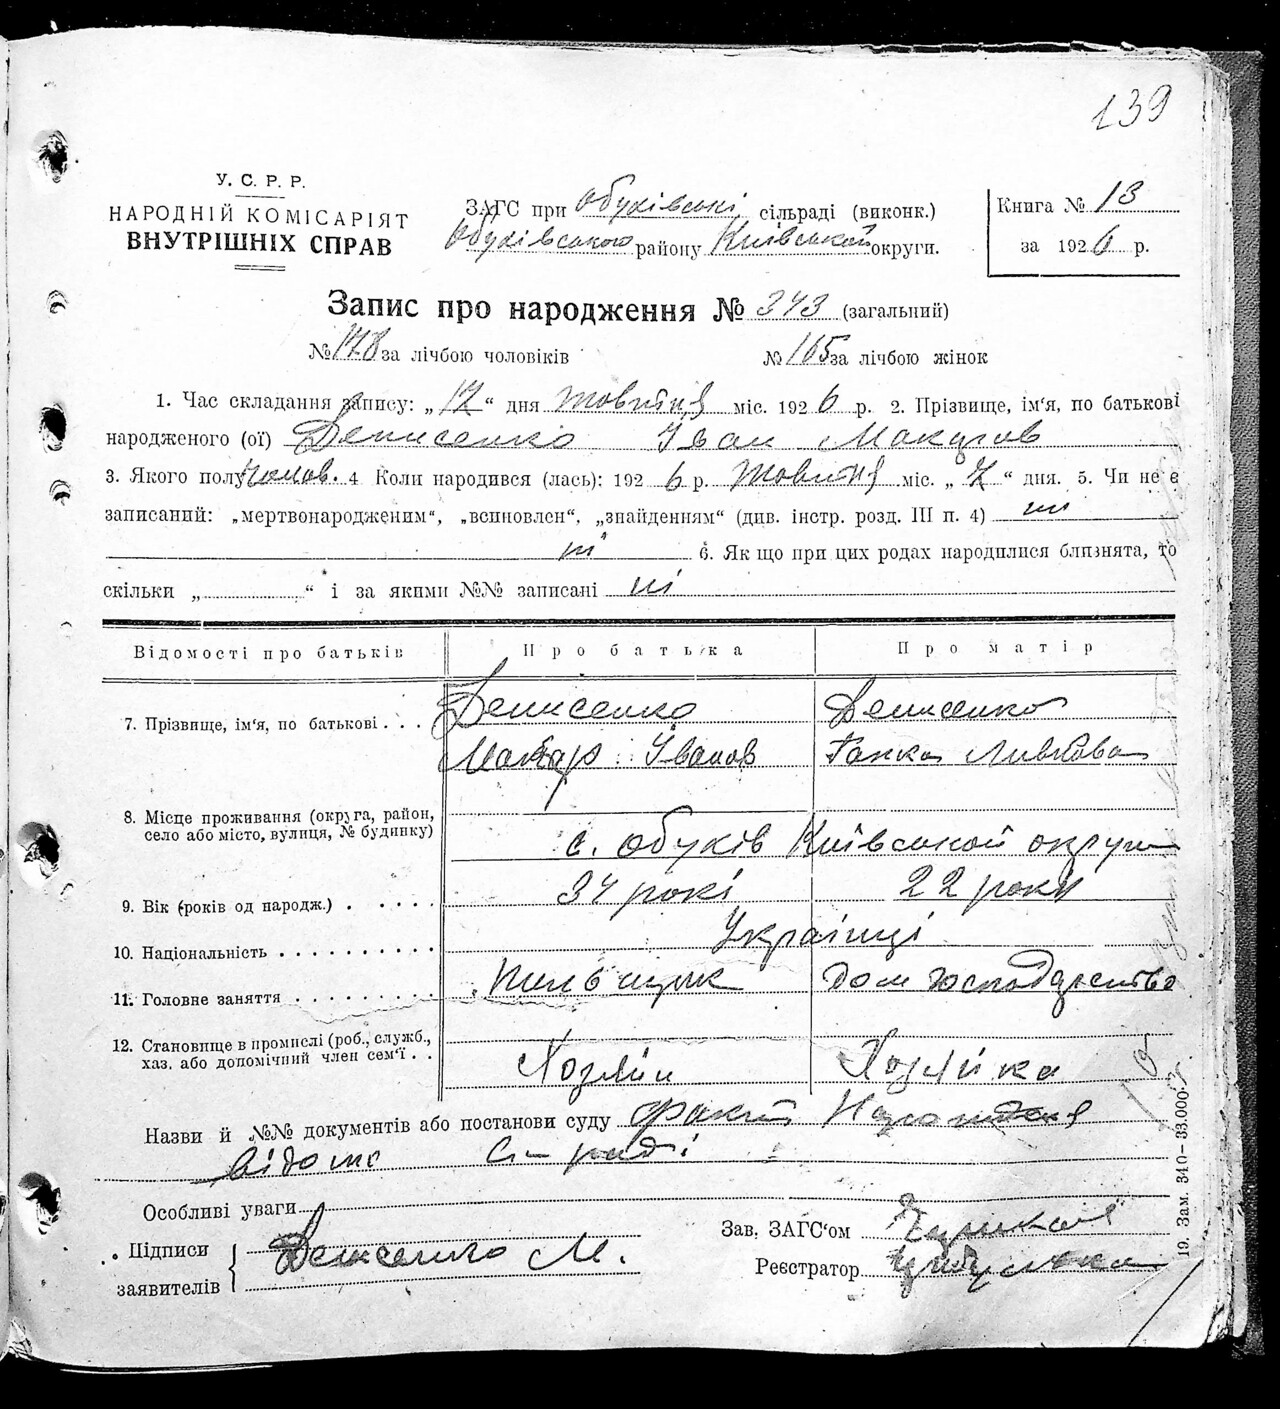 139
У. С. Р. Р.
НАРОДНІЙ КОМІСАРІЯТ
ВНУТРІШНІХ СПРАВ
ЗАГС при Обухівські сільраді (виконк.)
Обухівського району Київської округи.
Книга № 13
за 1926 р.
Запис про народження № 343 (загальний)
№ 178 за лічбою чоловіків № 165 за лічбою жінок
1. Час складання запису: „12“ дня жовтня міс. 1926 р. 2. Прізвище, ім'я, по батькові
народженого (ої) Денисенко Іван Макаров
3. Якого полу чолов. 4 Коли народився (лась): 1926 р. жовтня міс. „7“ дня. 5. Чи не є
записаний: „мертвонародженим“, „всиновлен“, „знайденням“ (див. інстр. розд. III п. 4) ні
ні 6. Як що при цих родах народилися близнята, то
скільки „ “ і за якими №№ записані ні
Відомості про батьків Про батька Про матір
7. Прізвище, ім'я, по батькові . . . Денисенко Денисенко
Макар Іванов Ганка
8. Місце проживання (округа, район,
село або місто, вулиця, № будинку)
с. Обухів Київської округи
9. Вік (років од народж.) . . . . . 34 рокі 22 роки
10. Національність . . . . . . . . . Українці
11. Головне заняття . . . . . . . . Дом господарство
12. Становище в промислі (роб., служб.,
хаз. або допомічний член сем'ї . .
Хозяїн Хозяйка
Назви й №№ документів або постанови суду факт народження
відоме раді
Особливі уваги
Підписи
заявителів
Денисенко М.
Зав. ЗАГС'ом
Реєстратор Цибулька
19. Зам. 340—33.000.